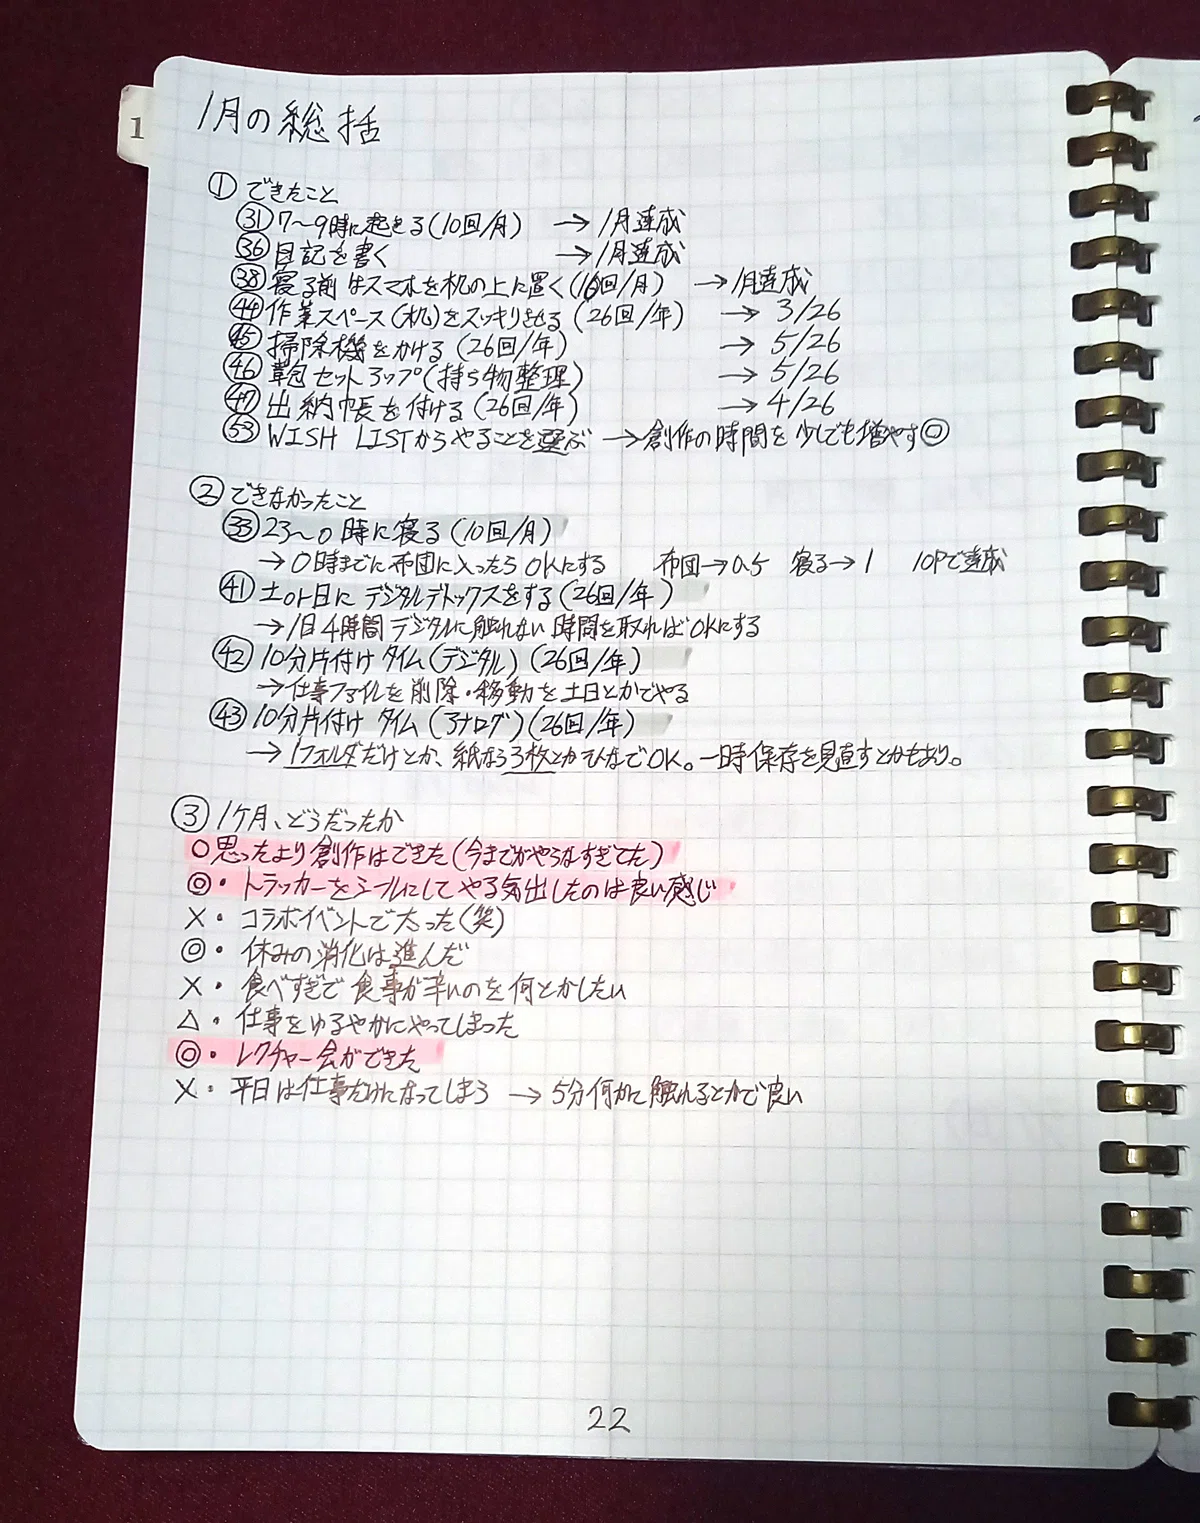 1
1月の総括
① できたこと
㉛ 7〜9時に起きる(10回/月) → 1月達成
㊱ 日記を書く → 1月達成
㊳ 寝る前はスマホを机の上に置く(10回/月) → 1月達成
㊹ 作業スペース(机)をスッキリさせる(26回/年) → 3/26
㊺ 掃除機をかける(26回/年) → 5/26
㊻ 鞄セットアップ(持ち物整理) → 5/26
㊼ 出納帳を付ける(26回/年) → 4/26
53 WISH LISTからやることを選ぶ → 創作の時間を少しでも増やす◎
② できなかったこと
㉝ 23〜0時に寝る(10回/月)
→ 0時までに布団に入ったらOKにする 布団→0.5 寝る→1 10Pで達成
㊶ 土or日にデジタルデトックスをする(26回/年)
→ 1日4時間デジタルに触れない時間を取ればOKにする
㊷ 10分片付けタイム(デジタル)(26回/年)
→仕事ファイルを削除・移動を土日とかでやる
㊸ 10分片付けタイム(アナログ)(26回/年)
→ 1フォルダだけとか、紙なら3枚とかひなでOK。一時保存を見直すとかもあり。
③ 1ヶ月、どうだったか
○思ったより創作はできた(今までがやらなすぎてた)
◎・トラッカーをシールにしてやる気出したのは良い感じ
×・コラボイベントで太った(笑)
◎・休みの消化は進んだ
×・食べすぎで食事が辛いのを何とかしたい
△・仕事をゆるやかにやってしまった
◎・レクチャー会ができた
×・平日は仕事だけになってしまう → 5分何かに触れるとかで良い
22